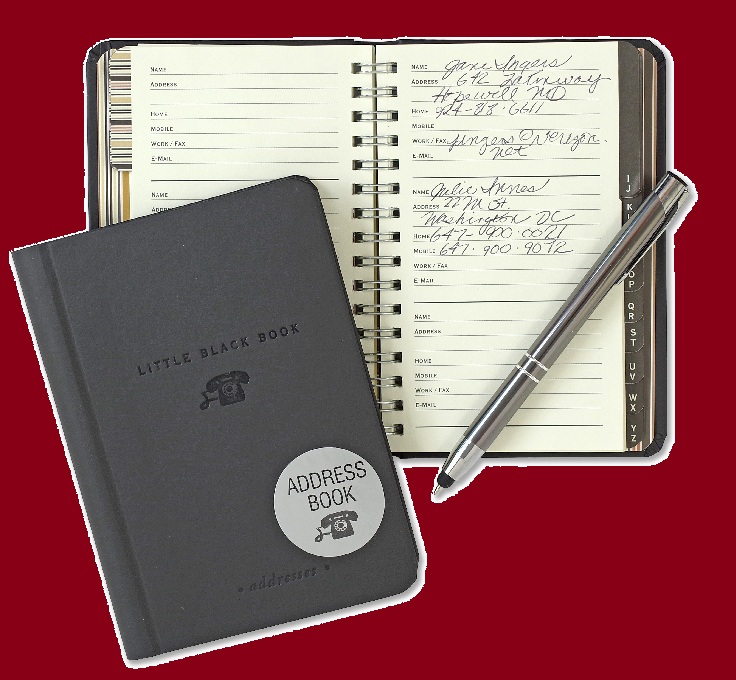 NAME
ADDRESS
HOME
MOBILE
WORK / FAX
E-MAIL
NAME
NAME Jane Ingers
ADDRESS 642
Hopewell MD
HOME
MOBILE
WORK / FAX
E-MAIL net
NAME Julie Innes
ADDRESS 22 M St.
Washington DC
HOME 647-900-0021
MOBILE 647-900-9012
WORK / FAX
E-MAIL
NAME
ADDRESS
HOME
MOBILE
WORK / FAX
E-MAIL
I
J
K
O
P
Q
R
S
T
U
V
W
X
Y
Z
LITTLE BLACK BOOK
ADDRESS
BOOK
• addresses •